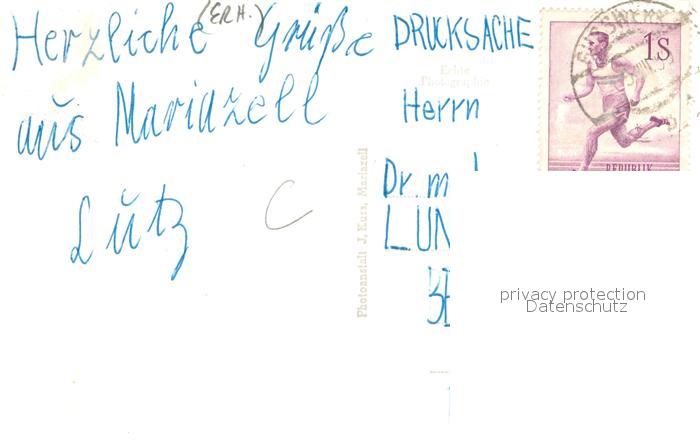 (ERH.)
Herzliche Grüße
aus Mariazell
Lutz
C
Photoanstalt J. Kuss, Mariazell
DRUCKSACHE
Echte
Photographie
Herrn
Dr. m
LUN
1S
REPUBLIK
privacy protection
Datenschutz